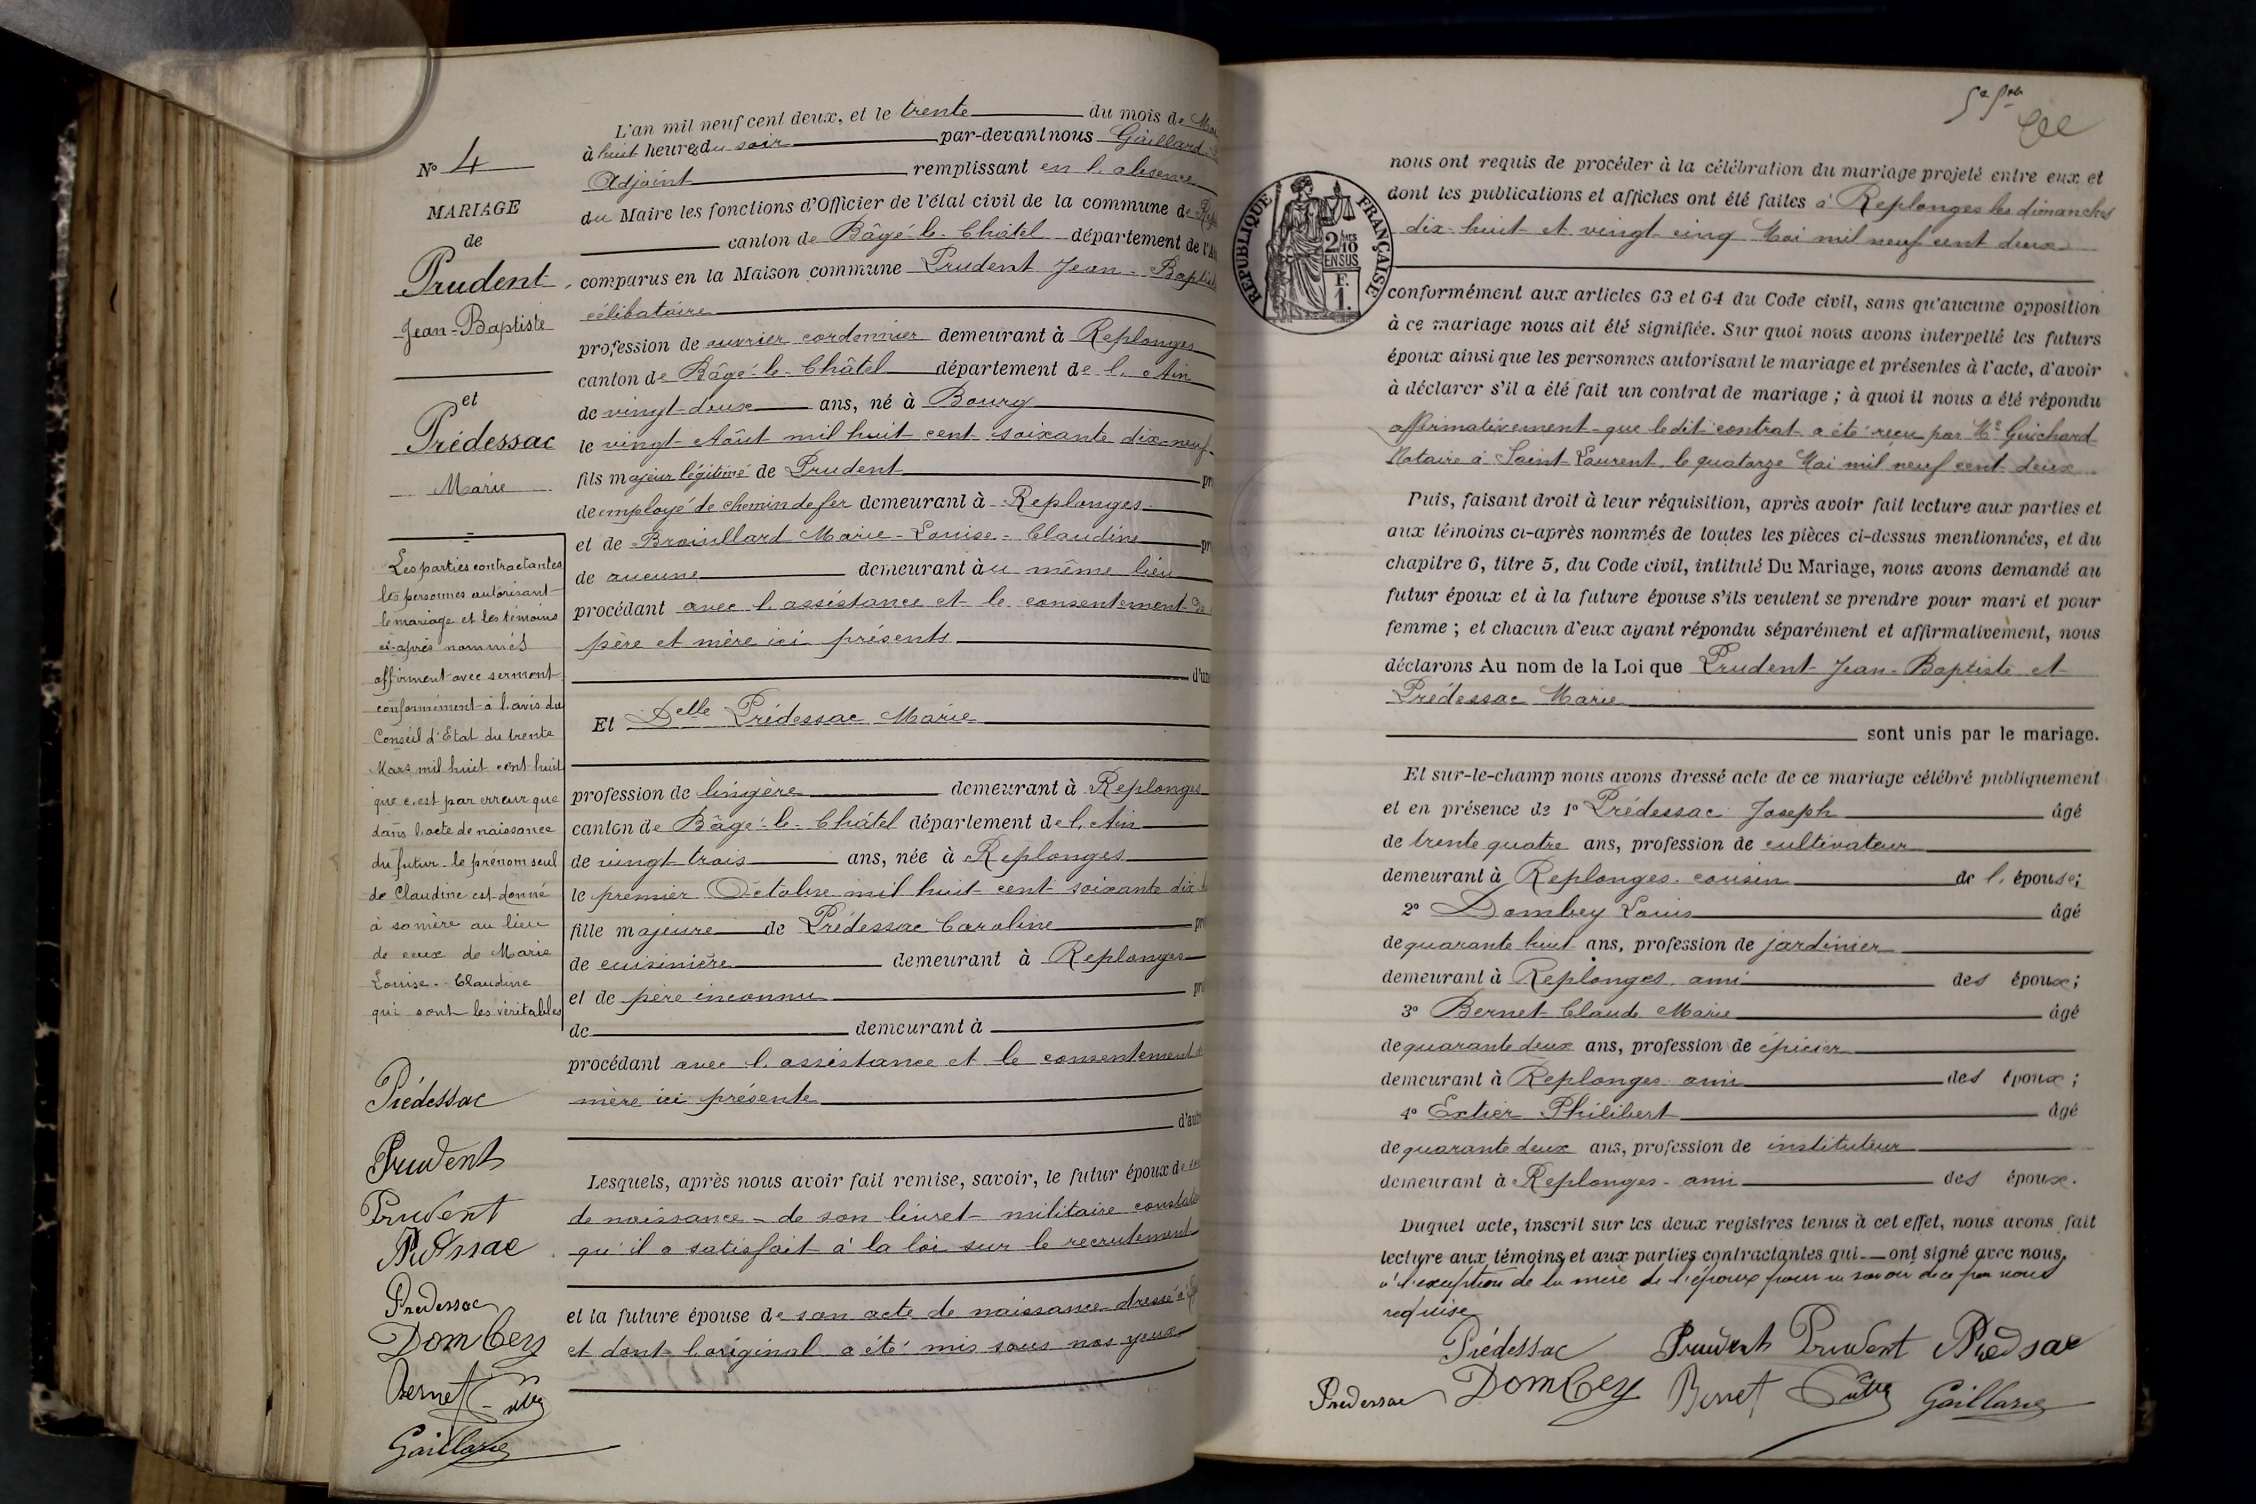 N° 4
MARIAGE
de
Prudent
Jean-Baptiste
et
Prédessac
Marie
Les parties contractantes
les personnes autorisant
le mariage et les témoins
ci-après nommés
affirment avec serment
conformément à l'avis du
Conseil d'Etat du trente
Mars mil huit cent huit
que c'est par erreur que
dans l'acte de naissance
du futur le prénom seul
de Claudine est donné
à sa mère au lieu
de ceux de Marie
Louise-Claudine
qui sont les véritables
Prédessac
Prudent
Prudent
Prédessac
Dombey
Bernet
Gaillard
L'an mil neuf cent deux, et le trente du mois de Mai
à huit heures du soir par-devant nous Gaillard
Adjoint remplissant en l'absence
du Maire les fonctions d'Officier de l'état civil de la commune de
canton de Bâgé-le-Châtel département de l'
comparus en la Maison commune Prudent Jean-Baptiste
célibataire
profession de ouvrier cordonnier demeurant à Replonges
canton de Bâgé-le-Châtel département de l'Ain
de vingt-deux ans, né à Bourg
le vingt Août mil huit cent soixante dix-neuf
fils majeur légitime de Prudent
de employé de chemin de fer demeurant à Replonges
et de Brouillard Marie-Louise-Claudine
de aucune demeurant àu même lieu
procédant avec l'assistance et le consentement de
père et mère ici présents
d'une
Et Delle Prédessac Marie
profession de lingère demeurant à Replonges
canton de Bâgé-le-Châtel département de l'Ain
de vingt trois ans, née à Replonges
le premier Octobre mil huit cent soixante dix
fille majeure de Prédessac Caroline
de cuisinière demeurant à Replonges
et de père inconnu
de demeurant à
procédant avec l'assistance et le consentement
mère ici présente
d'autre
Lesquels, après nous avoir fait remise, savoir, le futur époux de
de naissance - de son livret militaire constatant
qu'il a satisfait à la loi sur le recrutement
et la future épouse de son acte de naissance dressé à
et dont l'original a été mis sous nos yeux
RÉPUBLIQUE FRANÇAISE
2/10
EN SUS
nous ont requis de procéder à la célébration du mariage projeté entre eux et
dont les publications et affiches ont été faites à Replonges les dimanches
dix-huit et vingt cinq Mai mil neuf cent deux
conformément aux articles 63 et 64 du Code civil, sans qu'aucune opposition
à ce mariage nous ait été signifiée. Sur quoi nous avons interpellé les futurs
époux ainsi que les personnes autorisant le mariage et présentes à l'acte, d'avoir
à déclarer s'il a été fait un contrat de mariage ; à quoi il nous a été répondu
affirmativement que ledit contrat a été reçu par Me Guichard
Notaire à Saint-Laurent, le quatorze Mai mil neuf cent deux
Puis, faisant droit à leur réquisition, après avoir fait lecture aux parties et
aux témoins ci-après nommés de toutes les pièces ci-dessus mentionnées, et du
chapitre 6, titre 5, du Code civil, intitulé Du Mariage, nous avons demandé au
futur époux et à la future épouse s'ils veulent se prendre pour mari et pour
femme ; et chacun d'eux ayant répondu séparément et affirmativement, nous
déclarons Au nom de la Loi que Prudent Jean-Baptiste et
Prédessac Marie
sont unis par le mariage.
Et sur-le-champ nous avons dressé acte de ce mariage célébré publiquement
et en présence de 1° Prédessac Joseph âgé
de trente quatre ans, profession de cultivateur
demeurant à Replonges cousin de l'épouse;
2° Dombey Louis âgé
de quarante huit ans, profession de jardinier
demeurant à Replonges ami des époux;
3° Bernet Claude Marie âgé
de quarante deux ans, profession de épicier
demeurant à Replonges ami des époux;
4° Extier Philibert âgé
de quarante deux ans, profession de instituteur
demeurant à Replonges - ami des époux.
Duquel acte, inscrit sur les deux registres tenus à cet effet, nous avons fait
lecture aux témoins et aux parties contractantes qui ont signé avec nous,
à l'exception de la mère de l'époux pour ne savoir de ce par nous
requise
Prédessac Prudent Prudent Prédsac
Predessac Dombey Bernet Gaillard